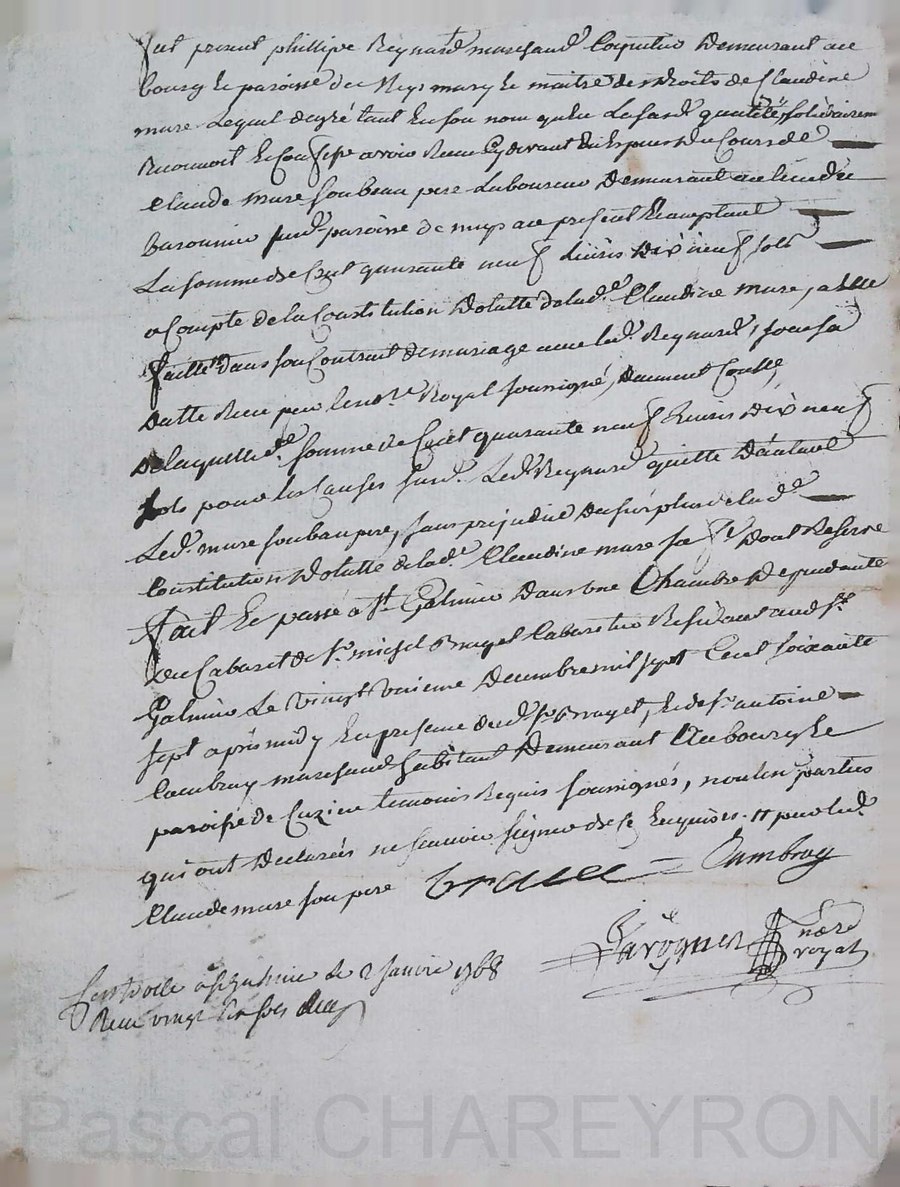 fut present phillipe Reynard marchand Coquetier Demeurant au
bourg & paroisse de Meys mary & maitre des droits de Claudine
mure Lequel degré tant En son nom qu'en Lasusd. quallité, solidairem
Reconnoit & Confesse avoir Receu Cydevant du
Claude mure son beau pere Laboureur Demeurant au
baronnier susd. paroisse de meys au present & acceptant
La somme de Cent quarante neuf Livres Dix neuf sols
a Compte de la Constitution Dotalle delad.e Claudine mure, a Elle
faitte dans son Contrait de mariage avec led. Reynard, sous sa
Datte Receu par le no.re Royal soussigné, Duement Con.llé,
De laquelle d.e somme de Cent quarante neuf Livres Dix neuf
sols pour les Causes susd. Led. Reynard quitte D'autant
Led. mure son beau pere, sans prejudice du surplus de lad.e
Constitution Dotalle delad.e Claudine mure sa f.e Dont Reserve
fait & passé a St. Galmier Dans une Chambre Dependante
du Cabaret de Sr. michel Brayet Cabaretier Residant aud. St.
Galmier Le vingt Decembre mil sept Cent soixante
sept après midy En presence dud. Sr. Brayet, & de Sr. antoine
Cambray marchand habitant Demeurant Au bourg &
paroisse de Cuzieu temoins Requis soussignés, non les parties
qui ont Declarées ne scavoir signer de ce Enquises. 
Claude mure son pere Braiet Cambray
Parogniez n.re royal
Controllé a St Galmier le 2 Janvier 1768
Receu vingt six sols
Pascal CHAREYRON